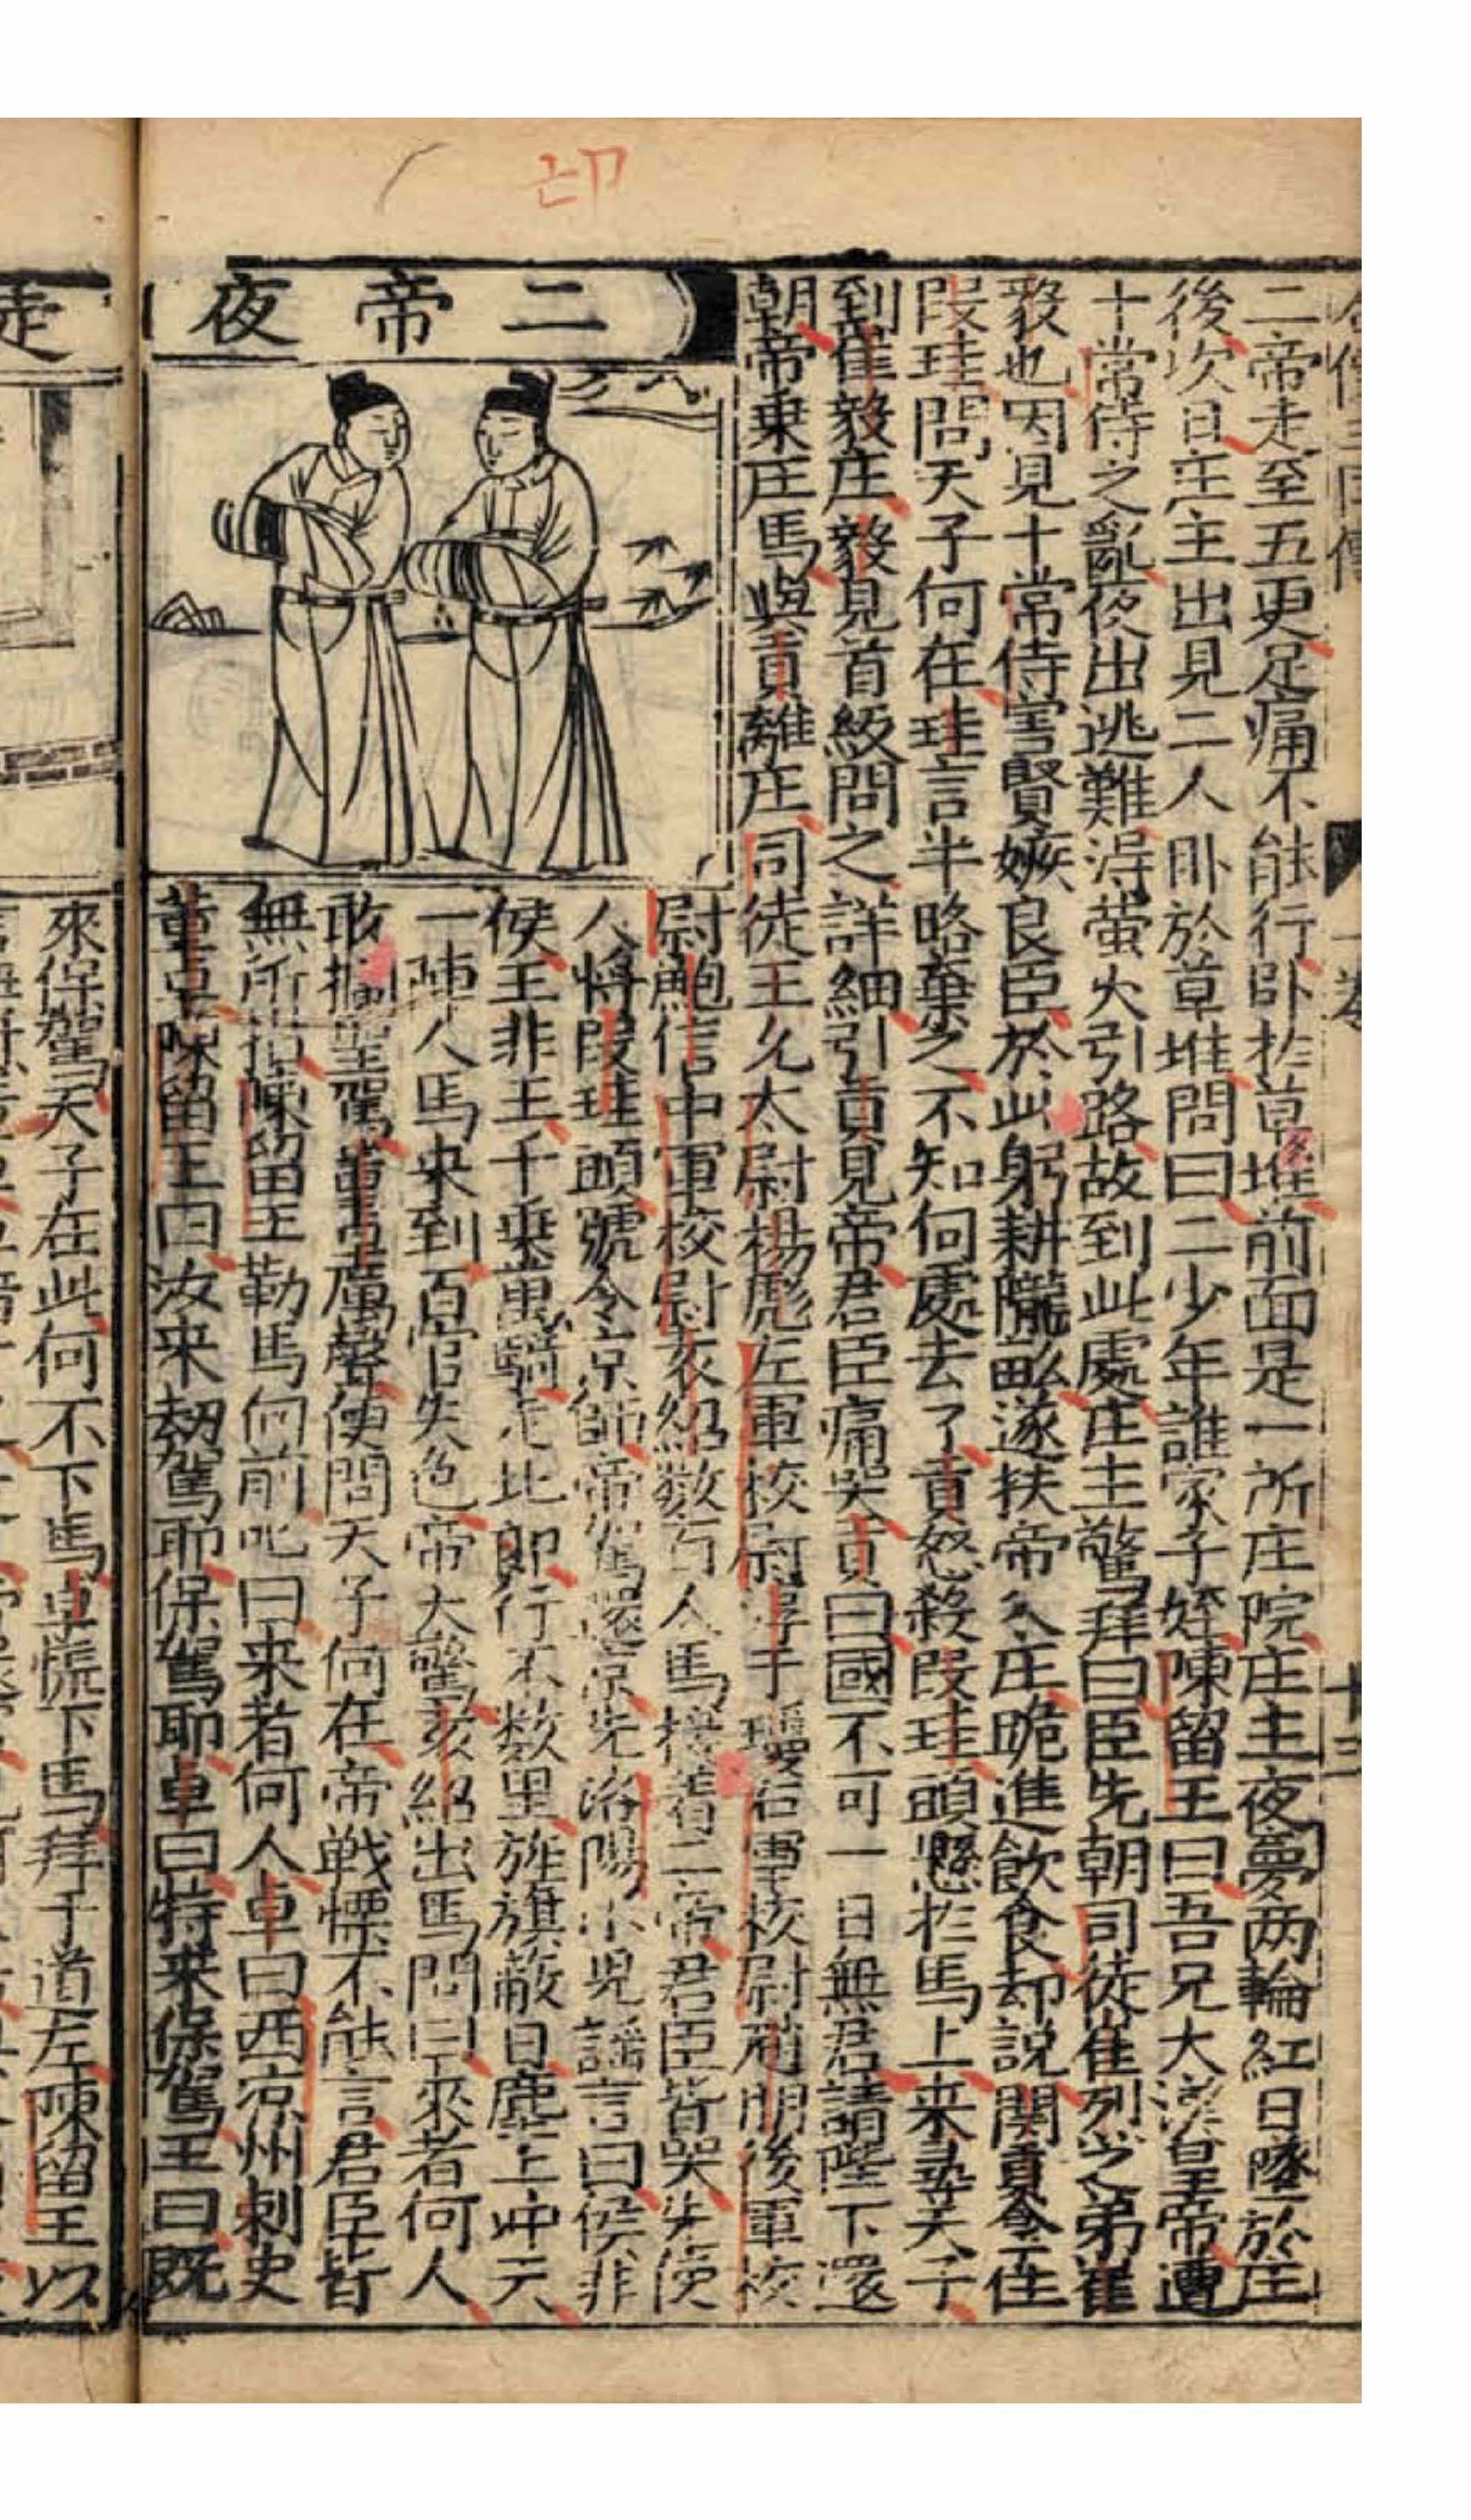 二帝走至五更足痛不能行卧於草堆前面是一所庄院庄主夜夢两輪紅日墜於庄
後次日庄主出見二人卧於草堆問曰二少年誰家子姪陳留王曰吾兄大漢皇帝遭
十常侍之亂夜出逃難得螢火引路故到此處庄主驚拜曰臣先朝司徒崔烈之弟崔
毅也因見十常侍害賢嫉良臣於此躬耕隴畝遂扶帝入庄跪進飲食却説閔貢令住
段珪問天子何在珪言半略棄之不知何處去了貢怒殺段珪頭懸於馬上来尋天子
到崔毅庄毅見首級問之詳細引貢見帝君臣痛哭貢曰國不可一日無君請陛下還
朝帝乗庄馬與貢離庄司徒王允太尉楊彪左軍校尉淳于瓊右軍校尉趙萌後軍校
尉鮑信中軍校尉袁紹数百人馬接着二帝君臣皆哭先使
人將段珪頭號令京師帝駕還京先洛陽小児謡言曰侯非
侯王非王千乗萬騎走北邙行不数里旌旗蔽日塵土冲天
一陣人馬来到百官失色帝大驚袁紹出馬問曰來者何人
敢攔聖駕董卓厲聲便問天子何在帝戦慄不能言君臣皆
無所措陳留王勒馬向前叱曰来者何人卓曰西凉州刺史
董卓陳留王曰汝来劫駕耶保駕耶卓曰特来保駕王曰既
二帝夜
來保駕天子在此何不下馬卓慌下馬拜于道左陳留王以
走
一卷
十三